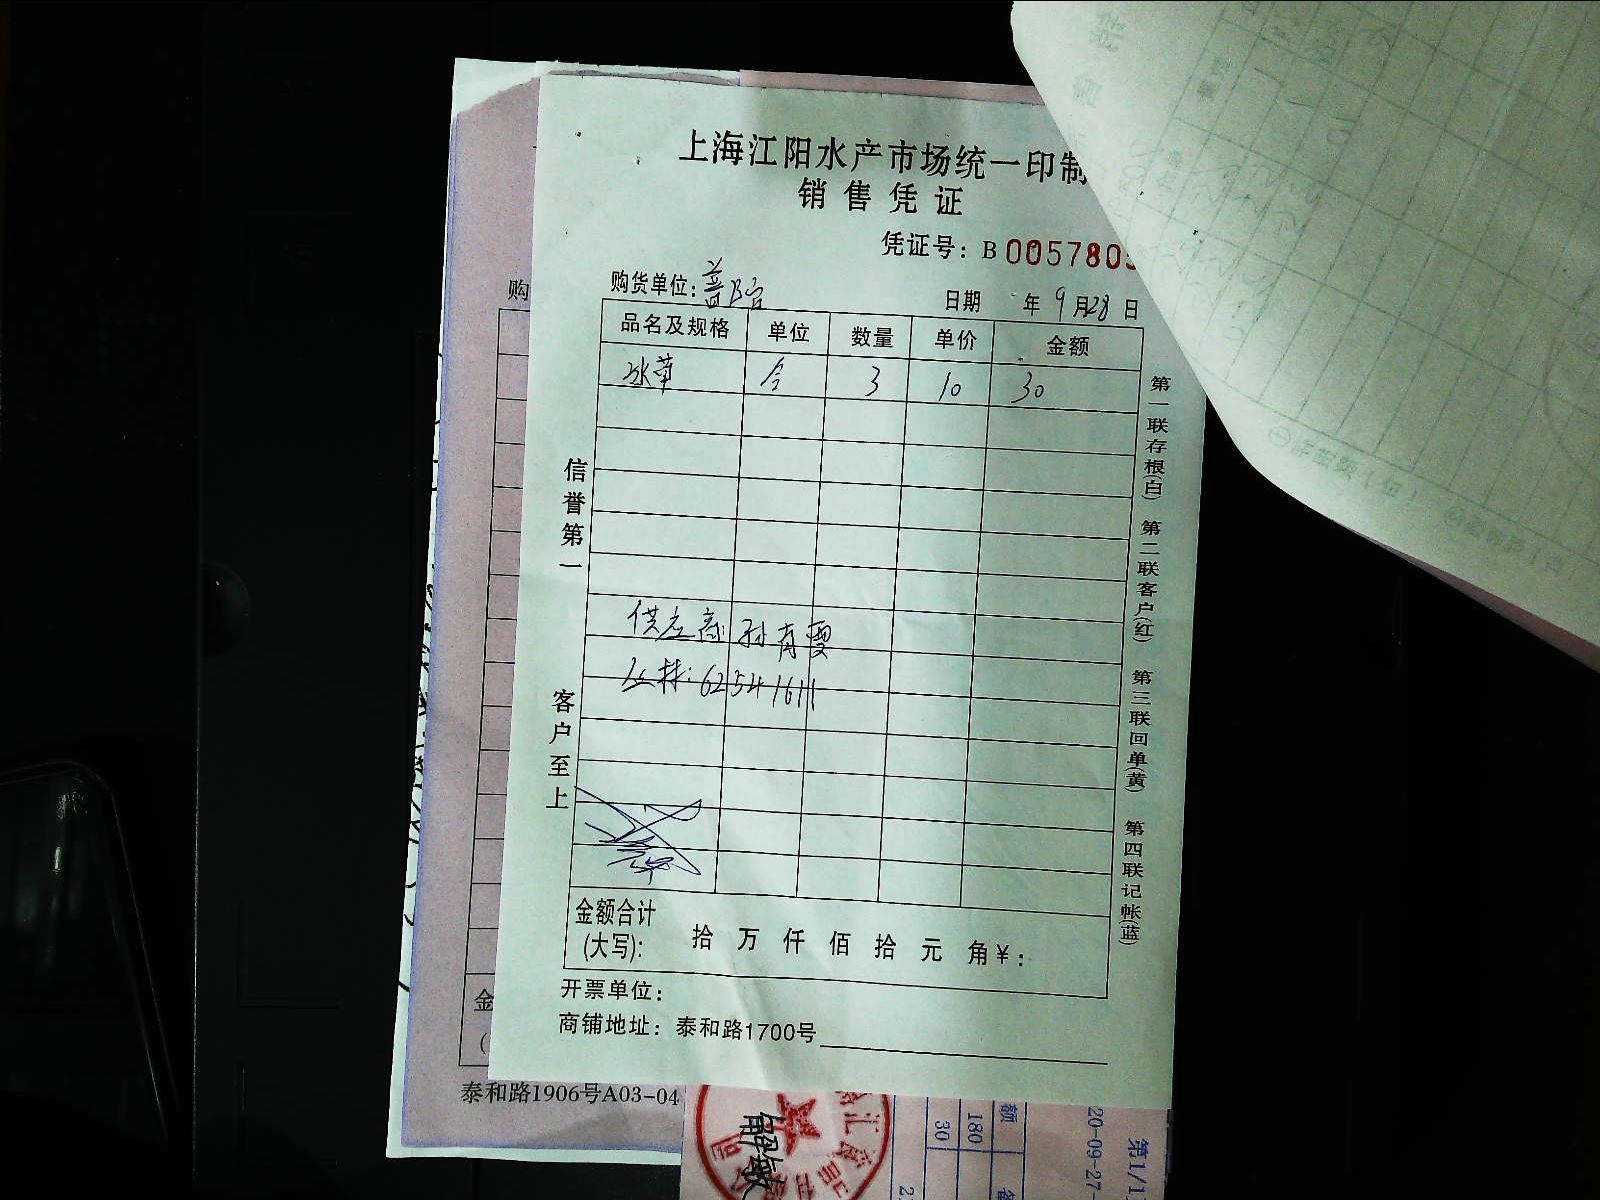 上海江阳水产市场统一印制
销售凭证
凭证号：B 0057803
购货单位：普陀
日期 年 9 月 28 日
品名及规格 单位 数量 单价 金额
冰草 合 3 10 30
供应商 孙育
62541611
信誉第一
客户至上
第一联存根(白) 第二联客户(红) 第三联回单(黄) 第四联记帐(蓝)
金额合计
(大写)： 拾 万 仟 佰 拾 元 角 ￥：
开票单位：
商铺地址：泰和路1700号
购
金
(
泰和路1906号A03-04
额
180
30
20-09-27-
第1/1